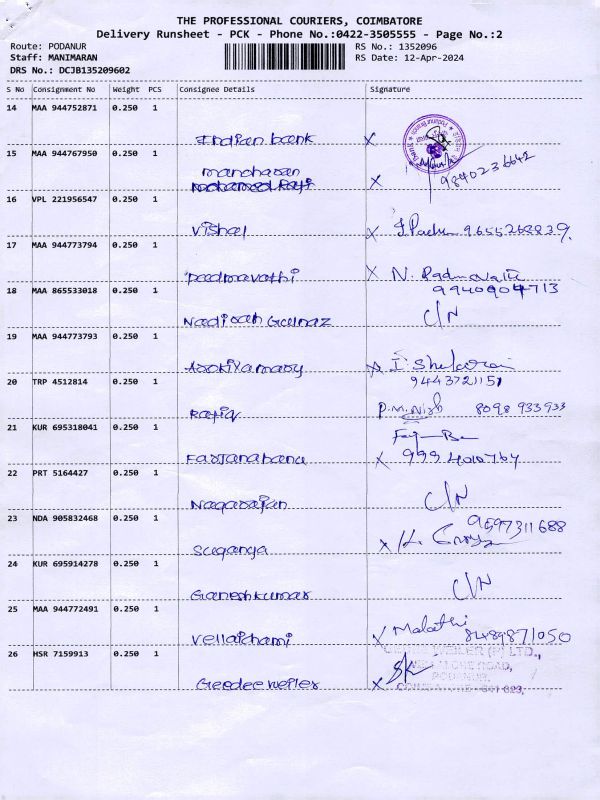 THE PROFESSIONAL COURIERS, COIMBATORE
Delivery Runsheet - PCK - Phone No.:0422-3505555 - Page No.:2
Route: PODANUR RS No.: 1352096
Staff: MANIMARAN RS Date: 12-Apr-2024
DRS No.: DCJB135209602
S No Consignment No Weight PCS Consignee Details Signature
14 MAA 944752871 0.250 1
Indian bank X
15 MAA 944767950 0.250 1
manoharan
X 9840236642
16 VPL 221956547 0.250 1
Vishal X
17 MAA 944773794 0.250 1
Padmavathi X N. Padmavathi
9940904713
18 MAA 865533018 0.250 1
Nadisah Gulnaz C/N
19 MAA 944773793 0.250 1
Arokiyamary X I. Shekaran
9443721151
20 TRP 4512814 0.250 1
Rafiq 8098 933933
21 KUR 695318041 0.250 1
Farjanabanu X
22 PRT 5164427 0.250 1
Nagarajan C/N
23 NDA 905832468 0.250 1
9597311688
Suganya X
24 KUR 695914278 0.250 1
Ganeshkumar C/N
25 MAA 944772491 0.250 1
Vellaichami X Malathi
8489871050
26 HSR 7159913 0.250 1
Geedee weiler X
PODANUR,